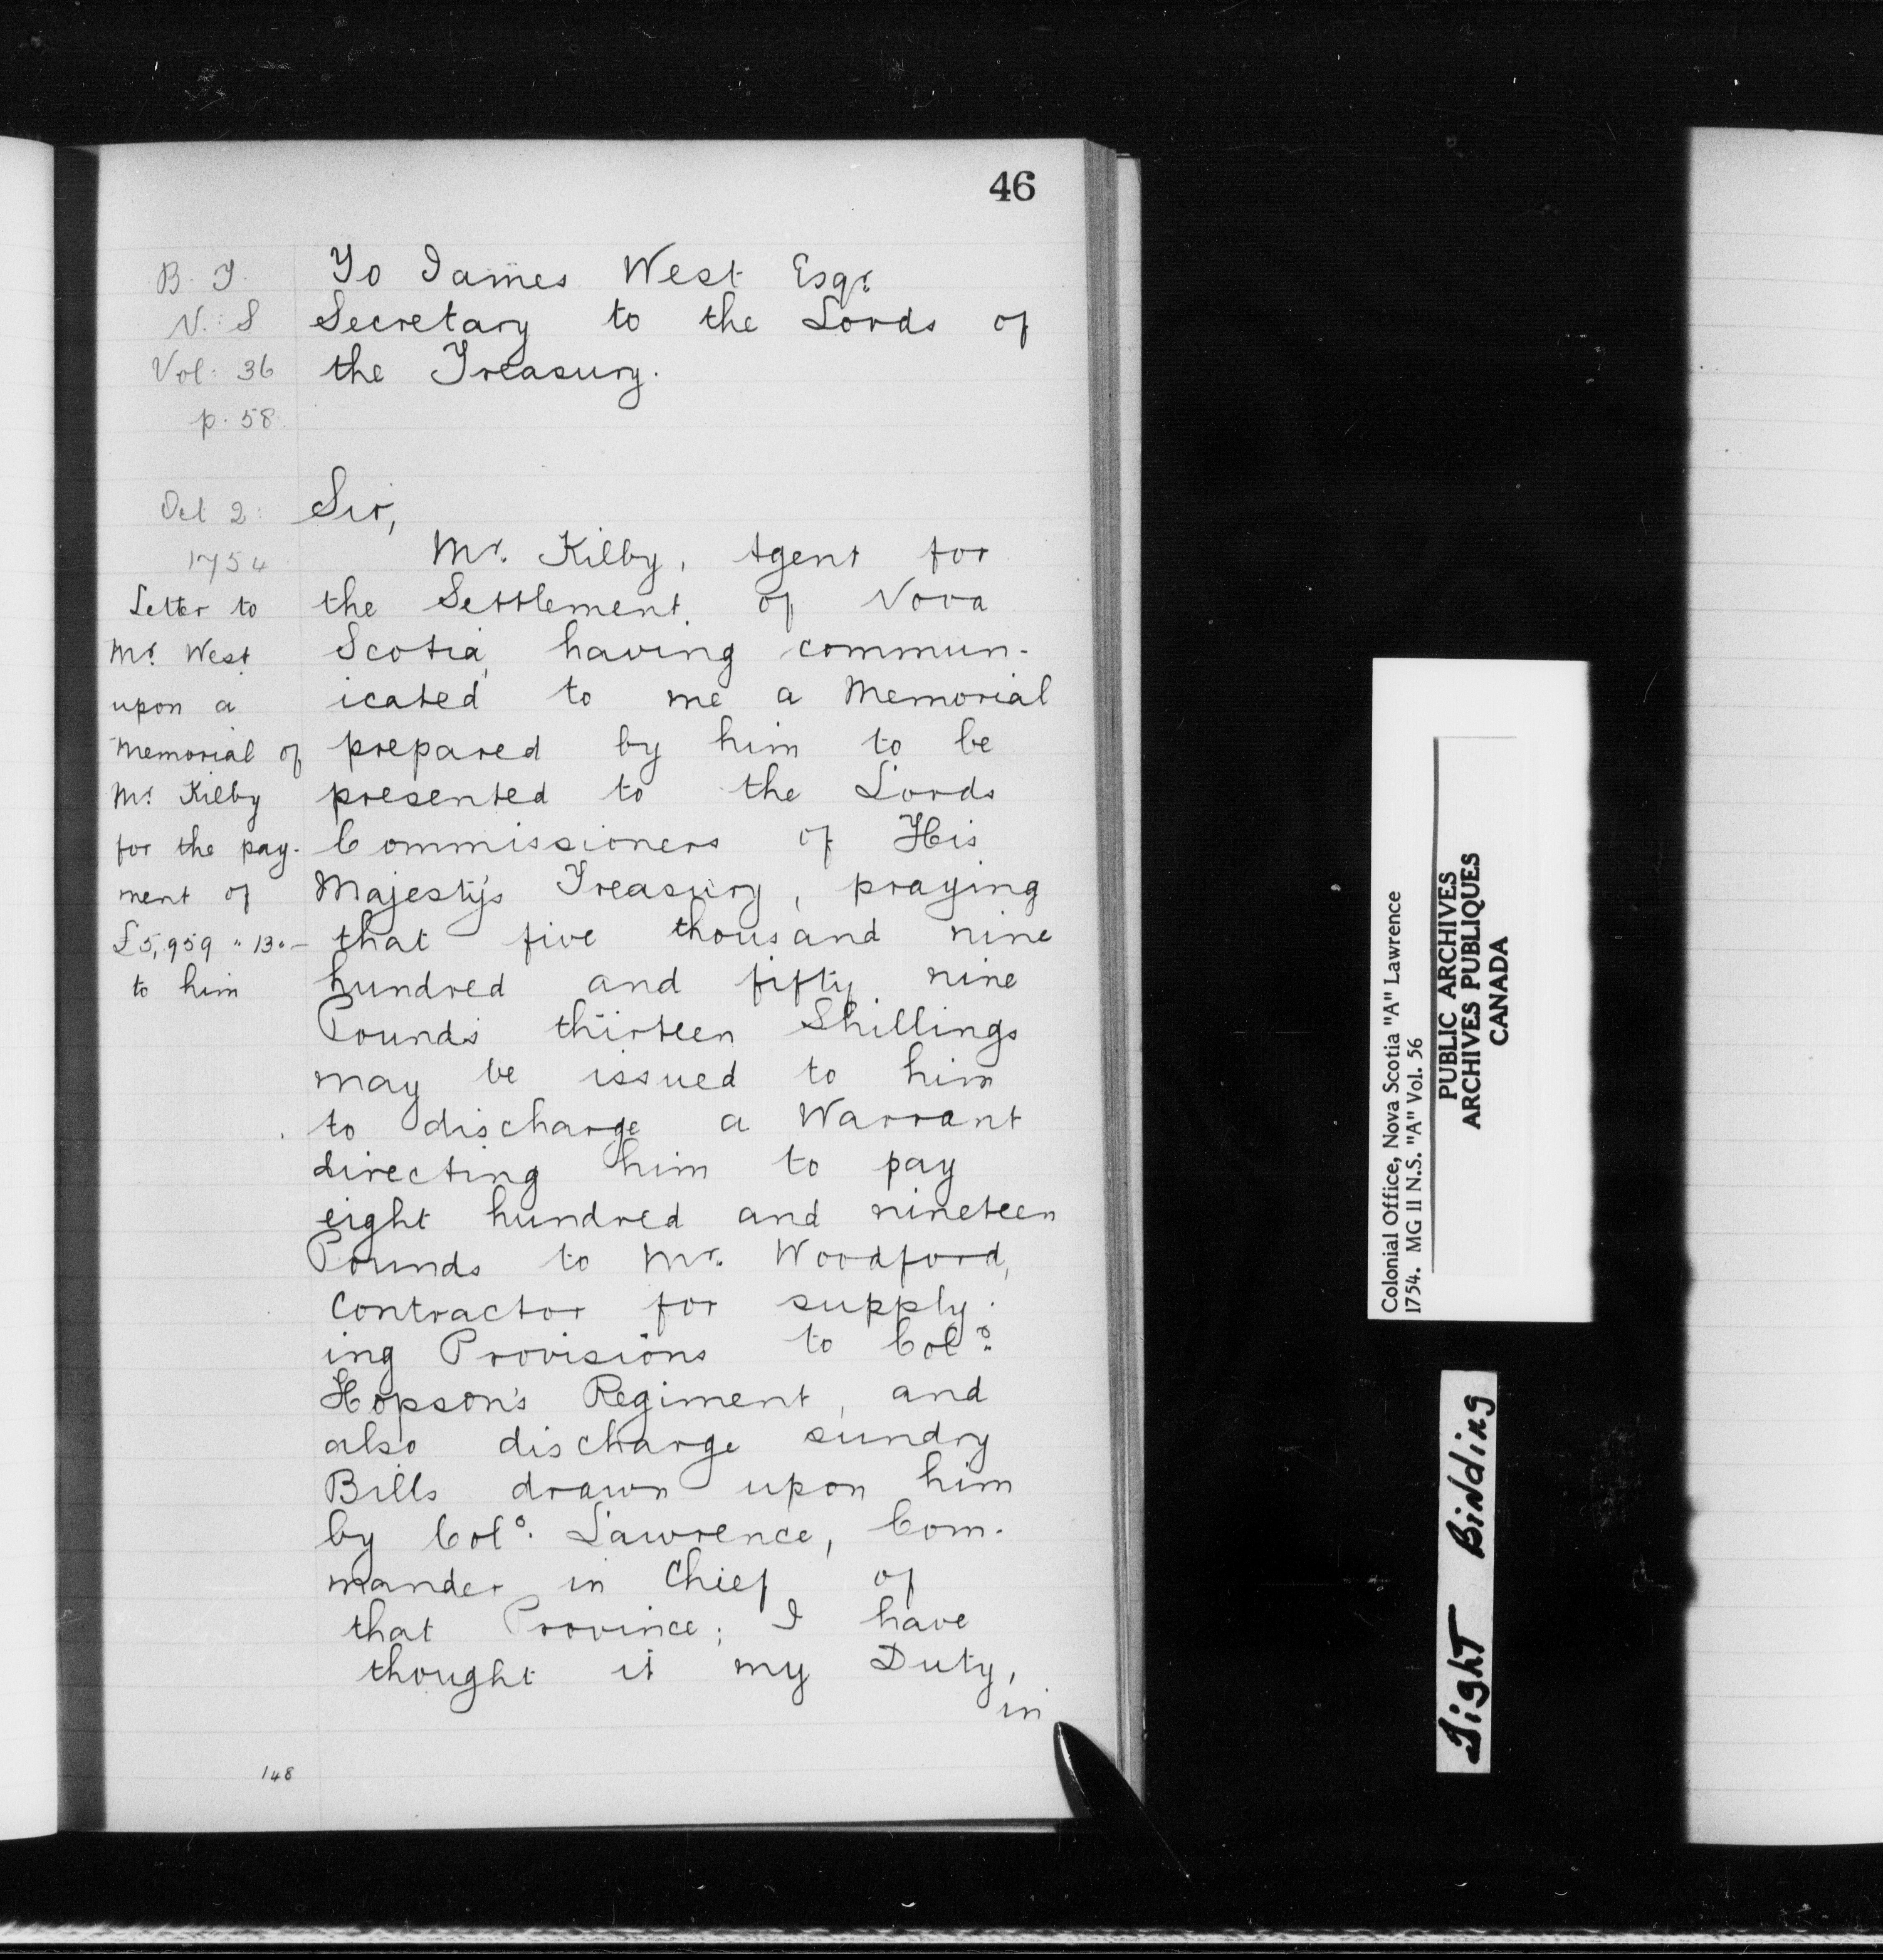 46
B. T.
N. S
Vol: 36
p. 58.
To James West Esqr.
Secretary to the Lords of
the Treasury.
Oct 2:
1754
Letter to
Mr. West
upon a
Memorial of
Mr. Kilby
for the pay-
ment of
£5,959 " 13 " –
to him
Sir,
Mr. Kilby, Agent for
the Settlement of Nova
Scotia, having commun-
icated to me a Memorial
prepared by him to be
presented to the Lords
Commissioners of His
Majesty's Treasury, praying
that five thousand nine
hundred and fifty nine
Pounds thirteen Shillings
may be issued to him
to discharge a Warrant
directing him to pay
eight hundred and nineteen
Pounds to Mr. Woodford,
Contractor for supply-
ing Provisions to Colo.
Hopson's Regiment, and
also discharge sundry
Bills drawn upon him
by Colo. Lawrence, Com-
mander in Chief of
that Province; I have
thought it my Duty,
in
148
Colonial Office, Nova Scotia "A" Lawrence
1754. MG II N.S. "A" Vol. 56
PUBLIC ARCHIVES
ARCHIVES PUBLIQUES
CANADA
Tight Binding